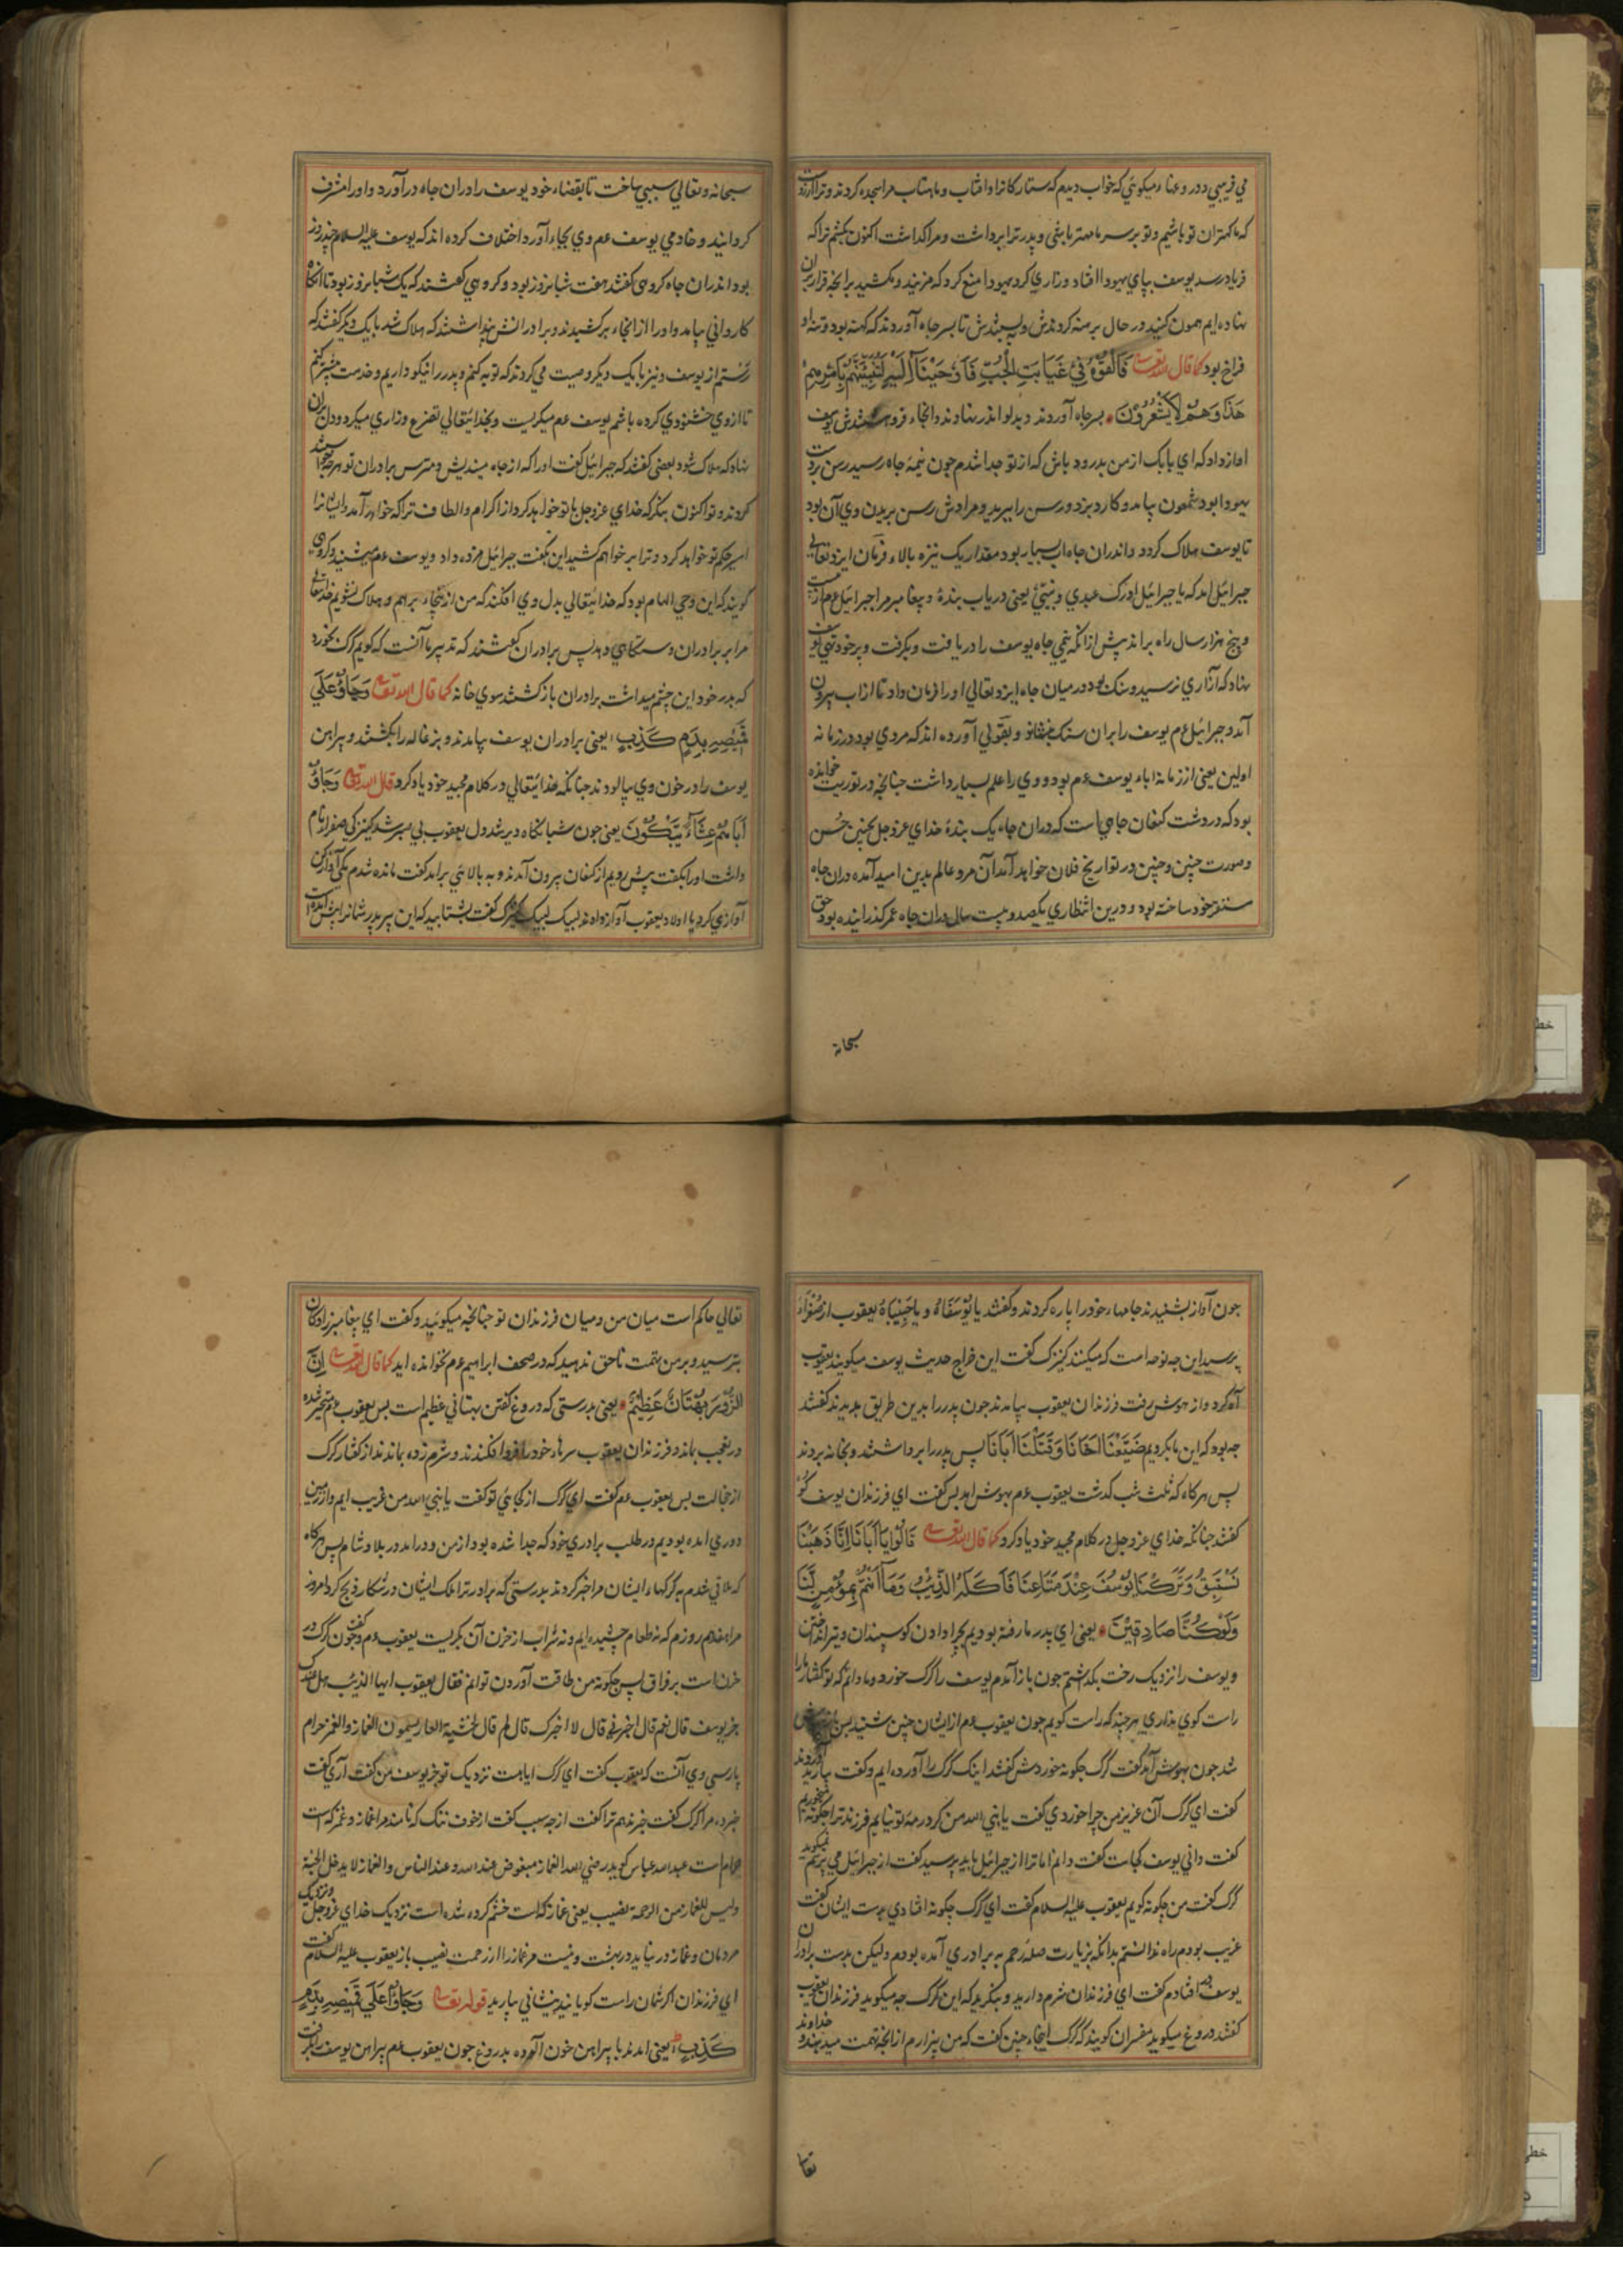 می فریبی و دروغها میکوئی که خواب دیدم که ستارکانرا و افتاب و ماهتاب مرا سجده کردند و ترا
که ما کمتران تو باشیم و تو بر سر ما مهتر باشی و پدر ترا برداشت و مرا کذاشت اکنون بکشم ترا که
فریاد رسد یوسف بپای یهودا افتاد و زاری کرد یهودا منع کرد که مزنید و مکشید برانچه قرار
نهاده ایم همون کنید در حال برهنه کردندش و به بستندش تا بسر چاه آوردند که کهنه بود و تنه او
فراخ بود کما قال الله تعالی فَالْقُوْهُ فِیْ غَیَابَتِ الْجُبِّ فَاَوْحَیْنَا اِلَیْهِ لَتُنَبِّئَنَّهُمْ بِاَمْرِهِمْ
هٰذَا وَهُمْ لَا یَشْعُرُوْنَ بسر چاه آوردند و بدلو اندر نهادند و انجاء فرو هشتندش یوسف
اواز داد که ای بابک از من بدرود باش که از تو جدا شدم چون نیمهٔ چاه رسید رسن بر دست
یهودا بود شمعون بیامد و کارد بزد و رسن را ببرید و مرادش رسن بریدن وی آن بود
تا یوسف هلاک کردد و اندران چاه اب بسیار بود مقدار یک نیزه بالاء فرمان ایزد تعالی
جبرائیل امد که یا جبرائیل ادرک عبدی و نبیی یعنی دریاب بندهٔ و پیغامبر مرا جبرائیل عم از
و پنج هزار سال راه براند پیش ازانکه بنیمی چاه یوسف را دریافت و بکرفت و بر خود
نهاد که آزاری نرسید و سنک بود در میان چاه ایزد تعالی او را فرمان داد تا از اب بیرون
آمد و جبرائیل عم یوسف را بران سنک بنشاند و بقولی آورده اند که مردی بود در زمانه
اولین یعنی از زمانهٔ اباء یوسف عم بود و وی را علم بسیار داشت چنانچه در توریت خوانده
بود که در دشت کنعان چاهی است که دران چاه یک بندهٔ خدای عز و جل بچنین حُسن
و صورت چنین و چنین در تواریخ فلان خواهد آمد آن مرد عالم بدین امید آمده دران چاه
مستقر خود ساخته بود و درین انتظاری یکصد و بیست سال دران چاه عمر کذرانیده بود حق
سبحانه
سبحانه و تعالی سببی ساخت تا بقضاء خود یوسف را دران چاه درآورد و او را مشرف
کردانید و خادمی یوسف عم وی بجاء آورد اختلاف کرده اند که یوسف علیه السلام چند روز
بود اندران چاه کروهی کفتند هفت شبانروز بود و کروهی کفتند که یک شبانروز بود تا آنکاه
کاروانی بیامد و او را از انجاء برکشیدند و برادرانش پنداشتند که هلاک شد با یک دیکر کفتند که
رستیم از یوسف و نیز با یک دیکر وصیت می کردند که توبه کنیم و پدر را نیکو داریم و خدمت بیشتر کنیم
تا از وی خشنودی کرده باشم یوسف عم میکریست و بخدایتعالی تضرع و زاری میکرد و دل بران
نهاد که هلاک شود بعضی کفتند که جبرائیل کفت او را که از چاه میندیش و مترس برادران تو هرچه
کردند و تو اکنون بنکر که خدای عز و جل با تو خواهد کرد از اکرام و الطاف ترا که خواهد آمد و ایشانرا
اسیر حکم تو خواهد کرد و ترا بر خواهم کشید این بکفت جبرائیل مژده داد و یوسف عم میشنید و کروهی
کویند که این وحی الهام بود که خدایتعالی بدل وی افکند که من ازینجاء برهم و هلاک نشویم خدایتعالی
مرا بر برادران دستکاهی دهد پس برادران کفتند که تدبیر ما آنست که کویم کرک بخورد
که پدر خود این چشم میداشت برادران بازکشتند سوی خانه کما قال الله تعالی وَجَاؤُ عَلٰی
قَمِیْصِهٖ بِدَمٍ کَذِبٍ یعنی برادران یوسف بیامدند و بزغاله را بکشتند و پیراهن
یوسف را در خون وی بیالودند چنانکه خدایتعالی در کلام مجید خود یاد کرد قال الله تعالی وَجَاؤُ
اَبَاهُمْ عِشَاءً یَّبْکُوْنَ یعنی چون شبانکاه دیر شد دل یعقوب بی صبر شد کنیزکی صفرا نام
داشت او را بکفت پیش رویم از کنعان بیرون آمدند و به بالائی براند کفت مانده شدم یکی آواز کن
آوازی کرد یا اولاد یعقوب آواز دادند لبیک لبیک کنیزک کفت بشتابید که این پیر پدر شما نرا پیش
چون آواز بشنیدند جامهاء خود را پاره کردند و کفتند یا یُوْسُفَاهُ و یا حَبِیْبَاهُ یعقوب از صُفَراء
پرسید این چه نوحه است که میکنند کنیزک کفت این فراح حدیث یوسف میکویند یعقوب
آه کرد و از هوش برفت فرزندان یعقوب بیامدند چون پدر را بدین طریق بدیدند کفتند
چه بود که این ما کردیم ضَیَّعْنَا اَخَانَا وَ قَتَلْنَا اَبَانَا پس پدر را برداشتند و بخانه بردند
پس هرکاه که ثلث شب کذشت یعقوب عم بهوش امد پس کفت ای فرزندان یوسف کو
کفتند چنانکه خدای عز و جل در کلام مجید خود یاد کرد کما قال الله تعالی قَالُوْا یَا اَبَانَا اِنَّا ذَهَبْنَا
نَسْتَبِقُ وَ تَرَکْنَا یُوْسُفَ عِنْدَ مَتَاعِنَا فَاَکَلَهُ الذِّئْبُ وَمَا اَنْتَ بِمُؤْمِنٍ لَّنَا
وَلَوْ کُنَّا صَادِقِیْنَ یعنی ای پدر ما رفته بودیم بچرا دادن کوسپندان و تیر انداختن
و یوسف را نزدیک رخت بکذاشتیم چون باز آمدم یوسف را کرک خورد و ما دانم که تو کفتار ما را
راست کوی نداری هرچند که راست کویم چون یعقوب عم از ایشان چنین شنید پس
شد چون بهوش آمد کفت کرک چکونه خوردمش کفتند اینک کرک را آورده ایم و کفت بیارید آوردند
کفت ای کرک آن عزیز من چرا خوردی کفت یا نبی الله من کرد رمهٔ تو نیایم فرزند ترا چکونه بخوریم
کفت دانی یوسف کجاست کفت دانم اما ترا از جبرائیل باید پرسید کفت از جبرائیل می پرسم نمیکوید
کرک کفت من چکونه کویم یعقوب علیه السلام کفت ای کرک چکونه افتادی بدست ایشان کفت
غریب بودم راه ندانستم بدانکه بزیارت صلهٔ رحم به برادری آمده بودم ولیکن بدست برادران
یوسف در افتادم کفت ای فرزندان شرم دارید و بنکرید که این کرک چه میکوید فرزندان یعقوب
کفتند دروغ میکوید مفسران کویند که کرک اینجاء چنین کفت که من بیزارم ازانچه تهمت میدهند و خداوند
تعالی
تعالی حاکم است میان من و میان فرزندان تو چنانچه میکوئید و کفت ای پیغامبر زادکان
بترسید و بر من تهمت ناحق نهید که در صحف ابراهیم عم نخوانده اید کما قال الله تعالی اِنَّ
الزُّوْرَ بُهْتَانٌ عَظِیْمٌ یعنی بدرستی که دروغ کفتن بهتانی عظیم است پس یعقوب عم متحیر شده
در تعجب ماند و فرزندان یعقوب سرهاء خود را فرو افکندند و شرم زده بماندند از کفتار کرک
از خجالت پس یعقوب عم کفت ای کرک از کجائی تو کفت یا نبی الله من غریب ایم و از زمین
دوری امده بودیم در طلب برادری خود که جدا شده بود از من و در امد در بلاد شام پس هرکاه
که ملاقی شدم به کرکهاء ایشان مرا خبر کردند بدرستی که برادر ترا ملک ایشان در شکار ذبح کرد امروز
مرا هفدهم روزم که نه طعام چشیده ایم و نه شراب از حزن آن بکریست یعقوب عم و کفت چون کرک در
حزن است بر فراق پس چکونه من طاقت آوردن توانم فقال یعقوب ایها الذیب هل عندک
خبر یوسف قال نعم قال اخبرنی قال لا اخبرک قال لم قال لخشیة العار یسمون الغماز و الغمز حرام
پارسی وی آنست که یعقوب کفت ای کرک ایا هست نزدیک تو خبر یوسف من کفت آری کفت
خبر ده مرا کرک کفت خبر ندهم ترا کفت از چه سبب کفت از خوف ننک که نامند مرا غماز و غمز که است
حرام است عبدالله عباس کوید رضی الله الغماز مبغوض عند الله و عند الناس و الغماز لا یدخل الجنة
و لیس للغماز من الرحمة نصیب یعنی غماز که است خشم کرده شده است نزدیک خدای عز و جل و نزدیک
مردمان و غماز در نیاید در بهشت و نیست مر غماز را از رحمت نصیب باز یعقوب علیه السلام کفت
ای فرزندان اکر شمان راست کویانید نشانی بیارید قوله تعالی وَجَاؤُ عَلٰی قَمِیْصِهٖ بِدَمٍ
کَذِبٍ یعنی امدند با پیراهن خون آلوده بدروغ چون یعقوب عم پیراهن یوسف